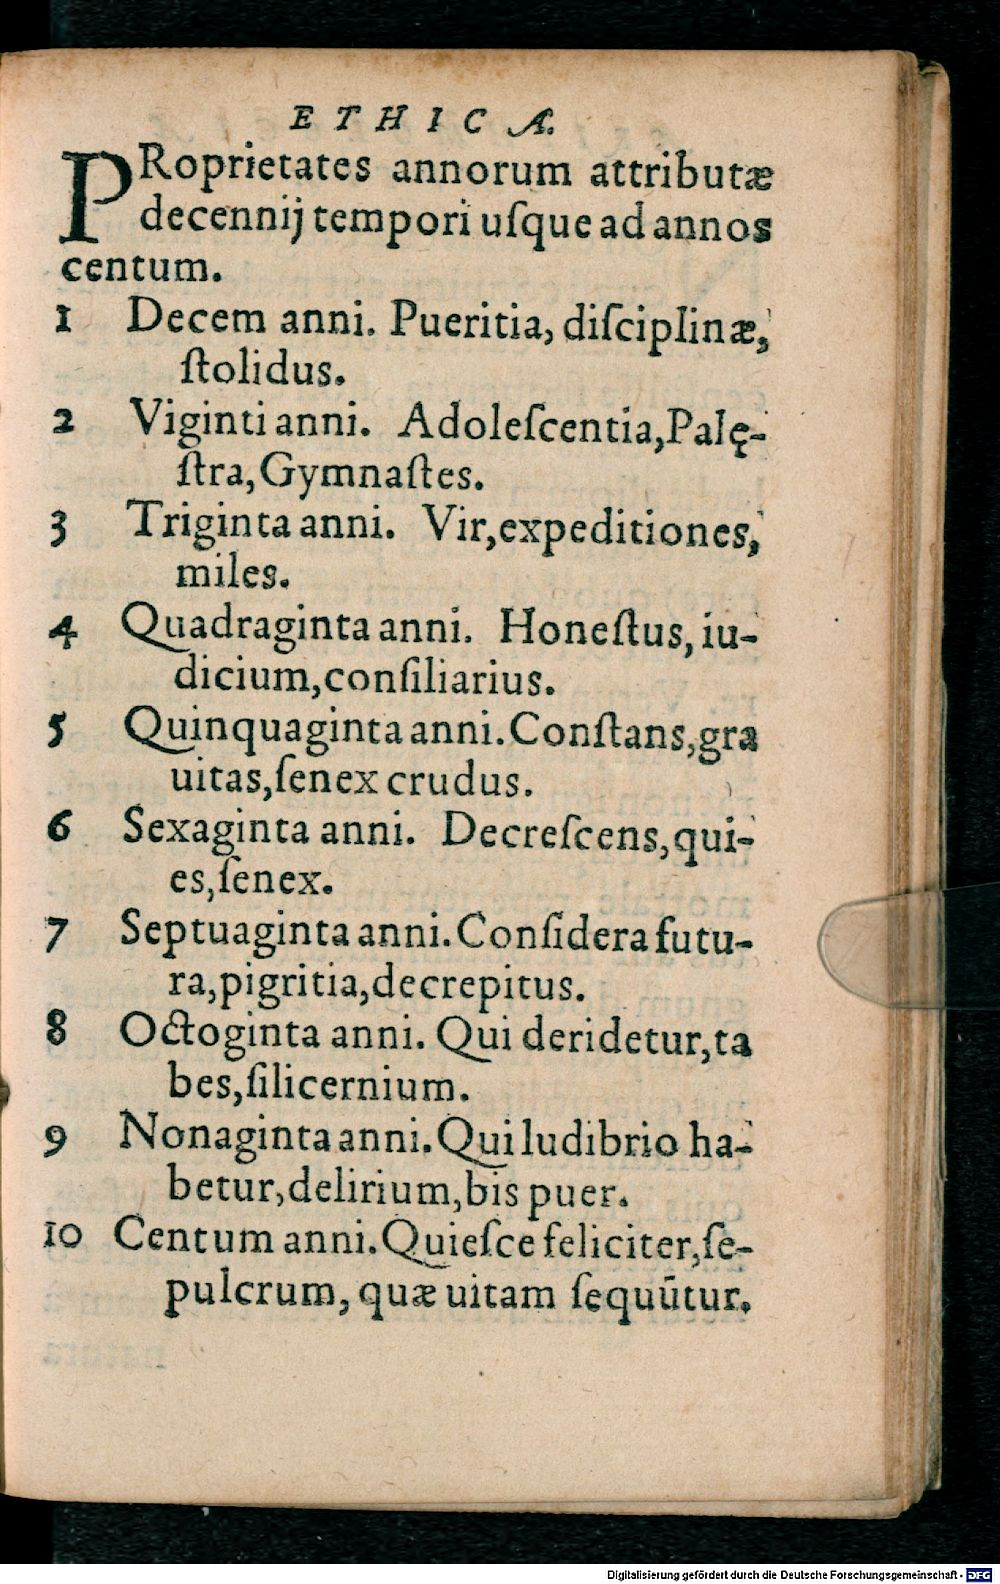 ETHICÆ.
PRoprietates annorum attributæ
decennij tempori uſque ad annos
centum.
1 Decem anni. Pueritia, diſciplinæ,
ſtolidus.
2 Viginti anni. Adoleſcentia, Palę-
ſtra, Gymnaſtes.
3 Triginta anni. Vir, expeditiones,
miles.
4 Quadraginta anni. Honeſtus, iu-
dicium, conſiliarius.
5 Quinquaginta anni. Conſtans, gra
uitas, ſenex crudus.
6 Sexaginta anni. Decreſcens, qui-
es, ſenex.
7 Septuaginta anni. Conſidera futu-
ra, pigritia, decrepitus.
8 Octoginta anni. Qui deridetur, ta
bes, ſilicernium.
9 Nonaginta anni. Qui ludibrio ha-
betur, delirium, bis puer.
10 Centum anni. Quieſce feliciter, ſe-
pulcrum, quæ uitam ſequūtur.
Digitalisierung gefördert durch die Deutsche Forschungsgemeinschaft - DFG